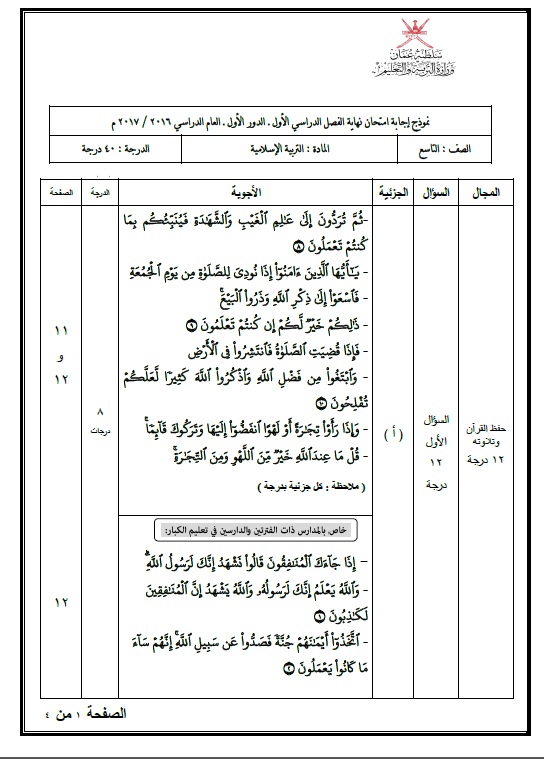 سلطنة عمان
وزارة التربية والتعليم
نموذج إجابة امتحان نهاية الفصل الدراسي الأول ـ الدور الأول ـ العام الدراسي ٢٠١٦ / ٢٠١٧ م
الصف : التاسع المادة : التربية الإسلامية الدرجة : ٤٠ درجة
المجال السؤال الجزئية الأجوبة الدرجة الصفحة
حفظ القرآن
وتلاوته
١٢ درجة
السؤال
الأول
١٢
درجة
( أ )
-ثُمَّ تُرَدُّونَ إِلَىٰ عَالِمِ الْغَيْبِ وَالشَّهَادَةِ فَيُنَبِّئُكُم بِمَا
كُنتُمْ تَعْمَلُونَ ٨
- يَا أَيُّهَا الَّذِينَ ءَامَنُوا إِذَا نُودِيَ لِلصَّلَوٰةِ مِن يَوْمِ الْجُمُعَةِ
- فَاسْعَوْا إِلَىٰ ذِكْرِ اللَّهِ وَذَرُوا الْبَيْعَ ۚ
- ذَٰلِكُمْ خَيْرٌ لَّكُمْ إِن كُنتُمْ تَعْلَمُونَ ٩
- فَإِذَا قُضِيَتِ الصَّلَوٰةُ فَانتَشِرُوا فِي الْأَرْضِ
- وَابْتَغُوا مِن فَضْلِ اللَّهِ وَاذْكُرُوا اللَّهَ كَثِيرًا لَّعَلَّكُمْ
تُفْلِحُونَ ١٠
- وَإِذَا رَأَوْا تِجَٰرَةً أَوْ لَهْوًا انفَضُّوا إِلَيْهَا وَتَرَكُوكَ قَائِمًا ۚ
- قُلْ مَا عِندَ اللَّهِ خَيْرٌ مِّنَ اللَّهْوِ وَمِنَ التِّجَٰرَةِ ۚ
( ملاحظة : كل جزئية بدرجة )
٨
درجات
١١
و
١٢
خاص بالمدارس ذات الفترتين والدارسين في تعليم الكبار:
- إِذَا جَاءَكَ الْمُنَٰفِقُونَ قَالُوا نَشْهَدُ إِنَّكَ لَرَسُولُ اللَّهِ ۗ
- وَاللَّهُ يَعْلَمُ إِنَّكَ لَرَسُولُهُ وَاللَّهُ يَشْهَدُ إِنَّ الْمُنَٰفِقِينَ
لَكَٰذِبُونَ ١
- اتَّخَذُوا أَيْمَٰنَهُمْ جُنَّةً فَصَدُّوا عَن سَبِيلِ اللَّهِ ۚ إِنَّهُمْ سَاءَ
مَا كَانُوا يَعْمَلُونَ ٢
١٢
الصفحة ١ من ٤